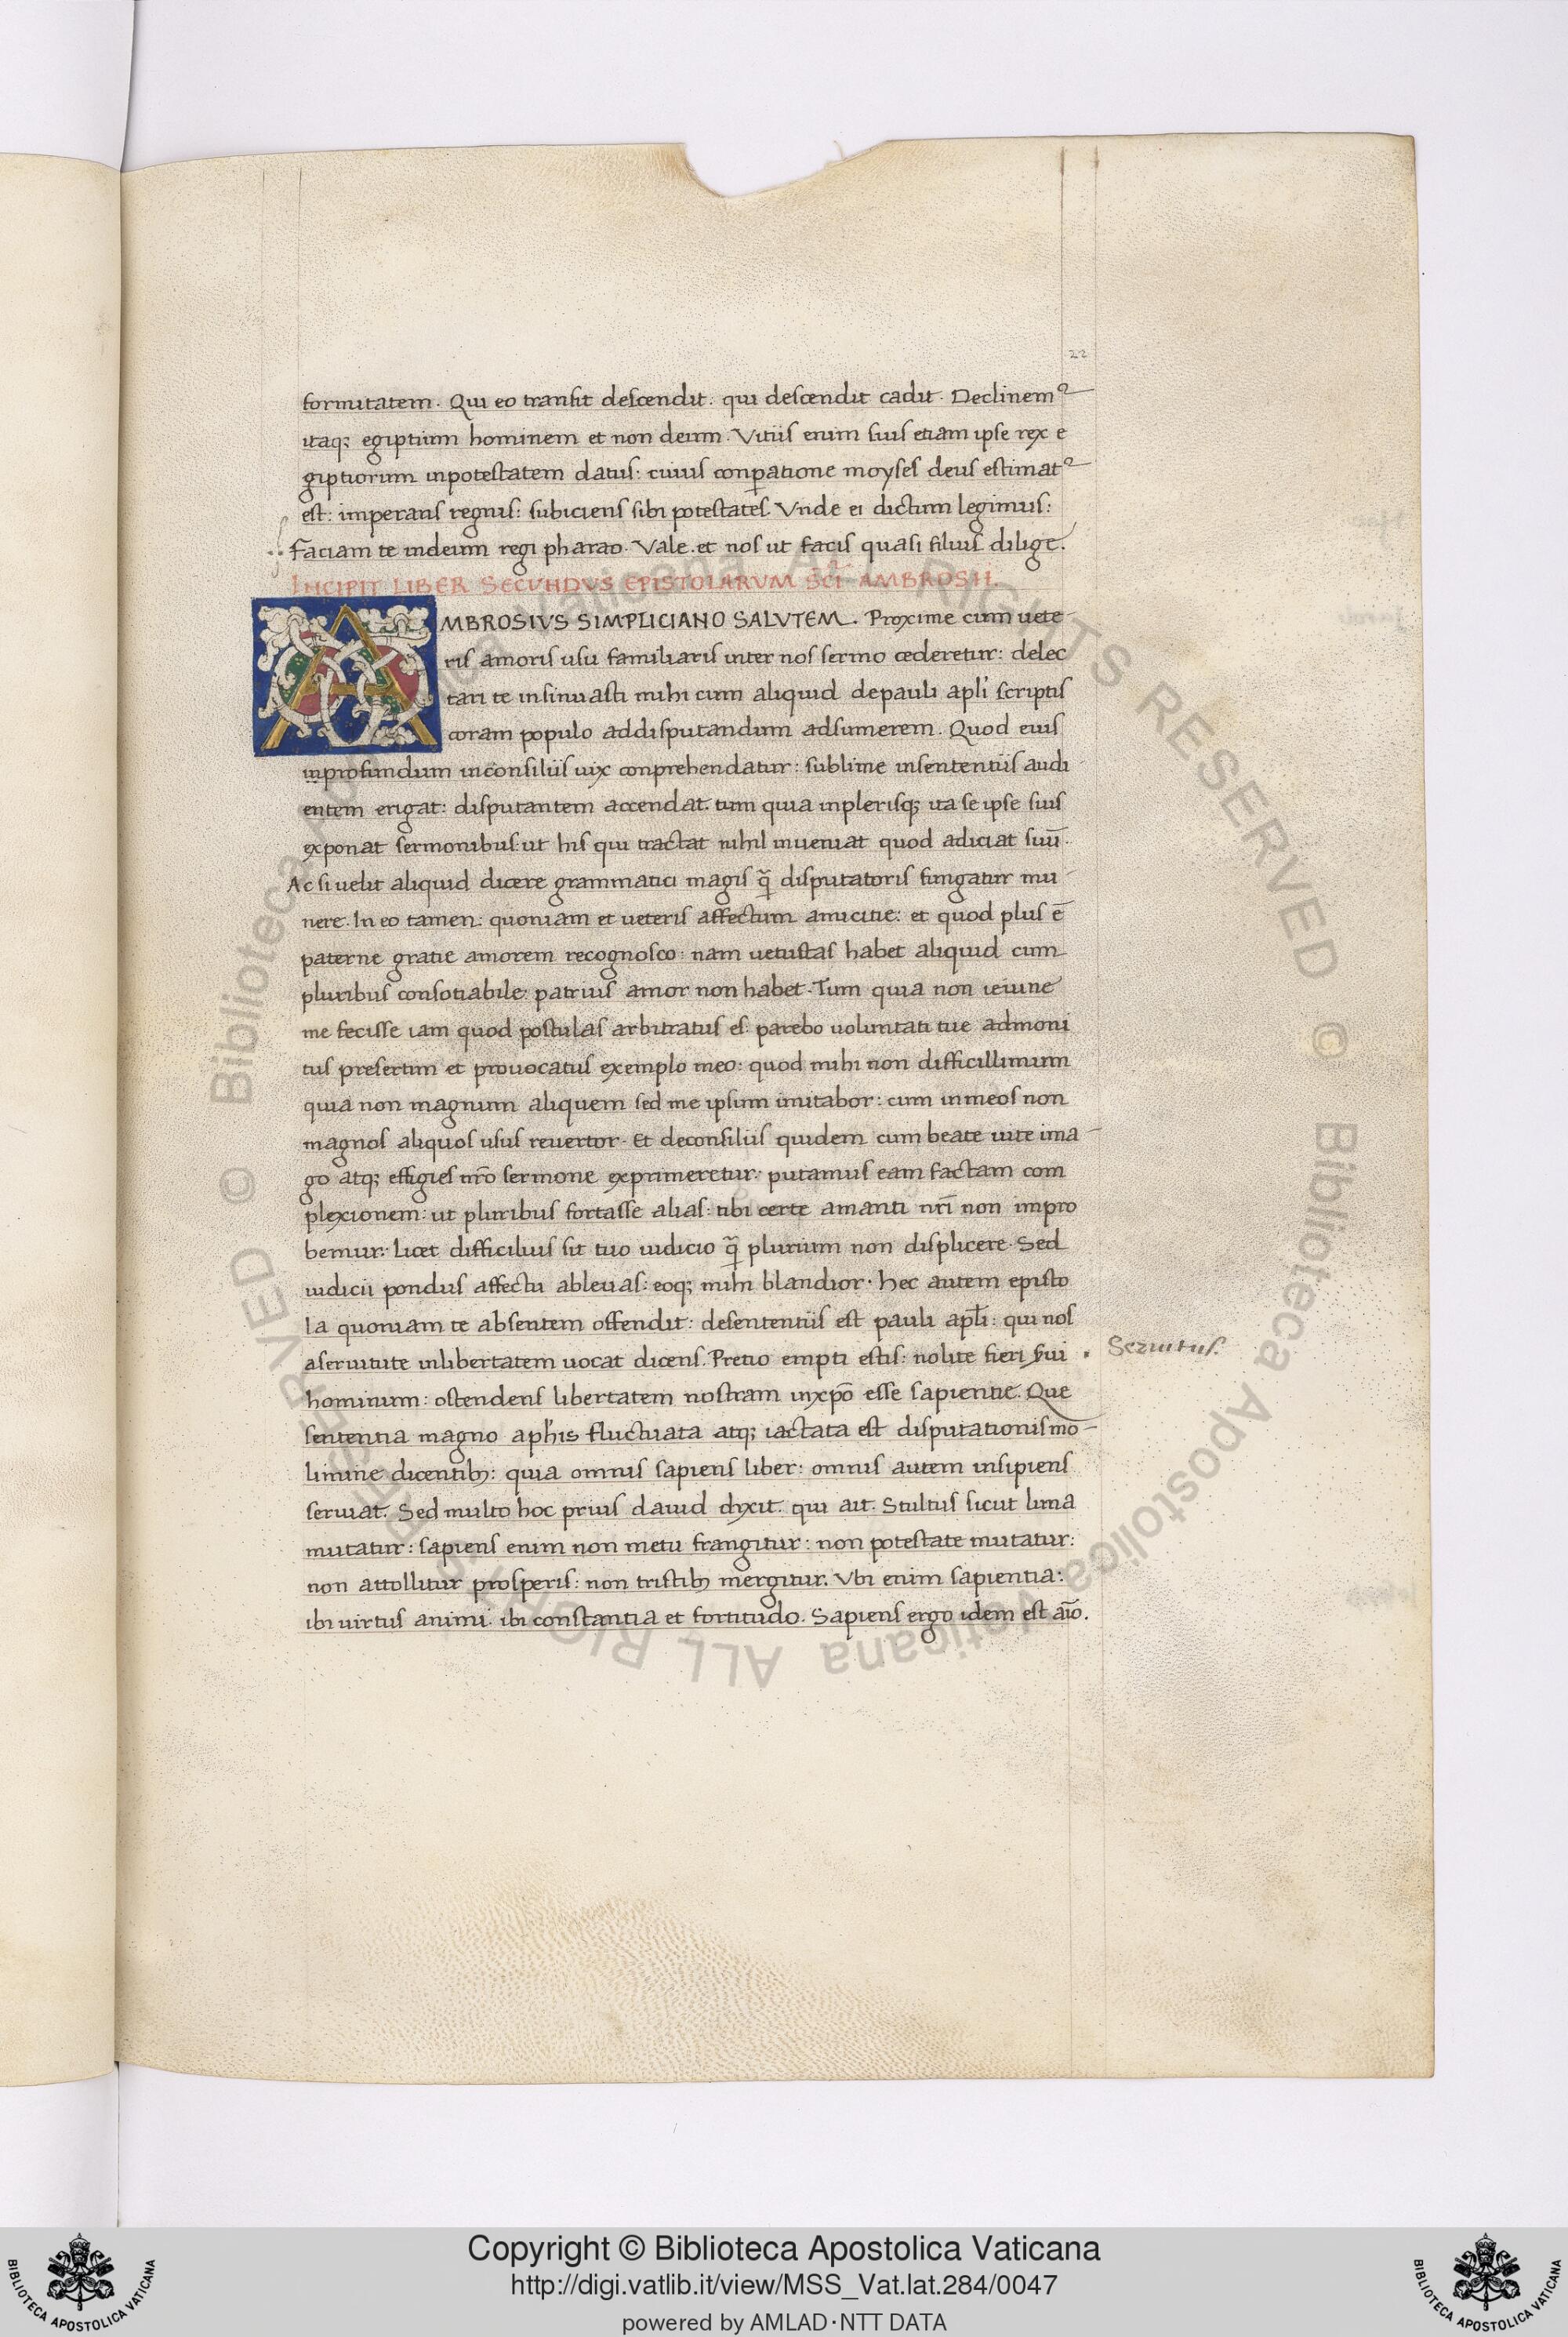 22
formitatem. Qui eo transit descendit: qui descendit cadit. Declinemꝰ
itaq; egiptium hominem et non deum. Vitiis enim suis etiam ipse rex e
giptiorum inpotestatem datus: cuius conꝑatione moyses deus estimatꝰ
est: imperans regnis: subiciens sibi potestates. Vnde ei dictum legimus:
Faciam te indeum regi pharao. Vale. et nos ut facis quasi filius dilige.
INCIPIT LIBER SECVNDVS EPISTOLARVM SC̄I AMBROSII.
AMBROSIVS SIMPLICIANO SALVTEM. Proxime cum uete
ris amoris usu familiaris inter nos sermo cederetur: delec
tari te insinuasti mihi cum aliquid depauli apl'i scriptis
coram populo addisputandum adsumerem. Quod eius
inprofundum inconsiliis uix conprehendatur: sublime insententiis audi
entem erigat: disputantem accendat. tum quia inplerisq; ita se ipse suis
exponat sermonibus: ut his qui tractat nihil inueniat quod adiciat suū.
Ac si uelit aliquid dicere grammatici magis q̄ disputatoris fungatur mu
nere. In eo tamen: quoniam et ueteris affectum amicitie: et quod plus ē
paterne gratie amorem recognosco: nam uetustas habet aliquid cum
pluribus consotiabile: patrius amor non habet. Tum quia non ieiune
me fecisse iam quod postulas arbitratus es: parebo uoluntati tue admoni
tus presertim et prouocatus exemplo meo: quod mihi non difficillimum
quia non magnum aliquem sed me ipsum imitabor: cum inmeos non
magnos aliquos usus reuertor. Et deconsiliis quidem cum beate uite ima
go atq; effigies nr̄o sermone exprimeretur: putamus eam factam com
plexionem: ut pluribus fortasse alias: tibi certe amanti nr̄i non impro
bemur: Licet difficilius sit tuo iudicio q̄ plurium non displicere. Sed
iudicii pondus affectu ableuas: eoq; mihi blandior. Hec autem episto
la quoniam te absentem offendit: desententiis est pauli apl̄i: qui nos
aseruitute inlibertatem uocat dicens. Pretio empti estis: nolite fieri s̄ui
Seruitus.
hominum: ostendens libertatem nostram inxp̄o esse sapientie. Que
sententia magno aph'is fluctuata atq; iactata est disputationis mo
limine dicentibꝫ: quia omnis sapiens liber: omnis autem insipiens
seruiat. Sed multo hoc prius dauid dixit. qui ait. Stultus sicut luna
mutatur: sapiens enim non metu frangitur: non potestate mutatur:
non attollitur prosperis: non tristibꝫ mergitur. Vbi enim sapientia:
ibi uirtus animi. ibi constantia et fortitudo. Sapiens ergo idem est aīo.
© Biblioteca Apostolica Vaticana ALL RIGHTS RESERVED
© Biblioteca Apostolica Vaticana ALL RIGHTS RESERVED
Copyright © Biblioteca Apostolica Vaticana
http://digi.vatlib.it/view/MSS_Vat.lat.284/0047
powered by AMLAD·NTT DATA
BIBLIOTECA APOSTOLICA VATICANA
BIBLIOTECA APOSTOLICA VATICANA